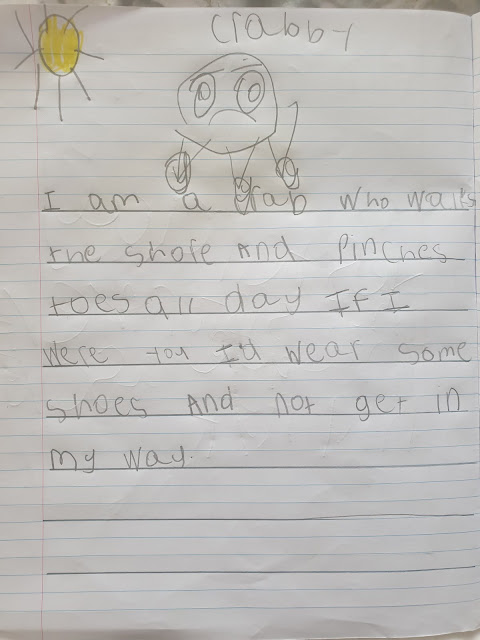 Crabby
I am a crab who walks
the shore And Pinches
toes all day If I
were you I'd wear some
shoes And not get in
my way.